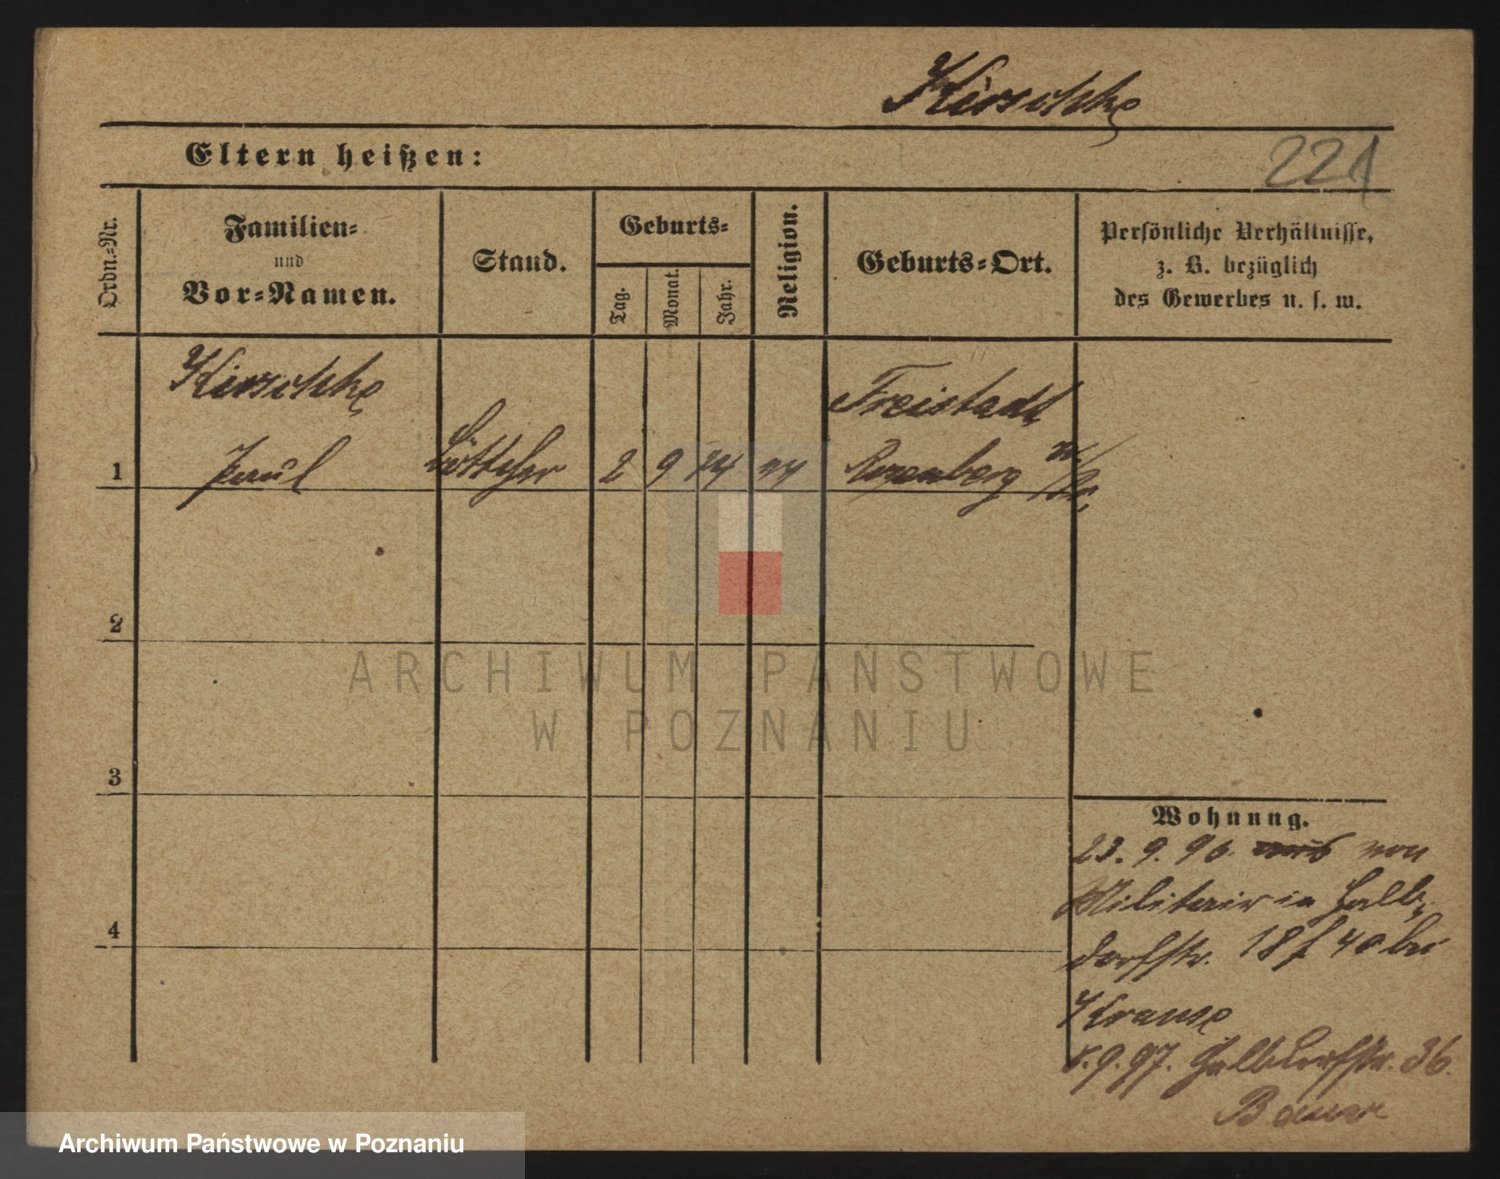 Kirschke
Eltern heißen:
221
Ordn.-Nr.
Familien-
und
Vor-Namen.
Stand.
Geburts-
Tag.
Monat.
Jahr.
Religion.
Geburts-Ort.
Persönliche Verhältnisse,
z. B. bezüglich
des Gewerbes u. s. w.
Kirschke
Freistadt
1 Paul Böttcher 2 9 74 Rosenberg
2
3
4
Wohnung.
23. 9. 96 von
Militair in Halb-
dorfstr. 18 40 bei
Krause
9. 97. Halbdorfstr. 36.
Bauer
ARCHIWUM PAŃSTWOWE
W POZNANIU
Archiwum Państwowe w Poznaniu